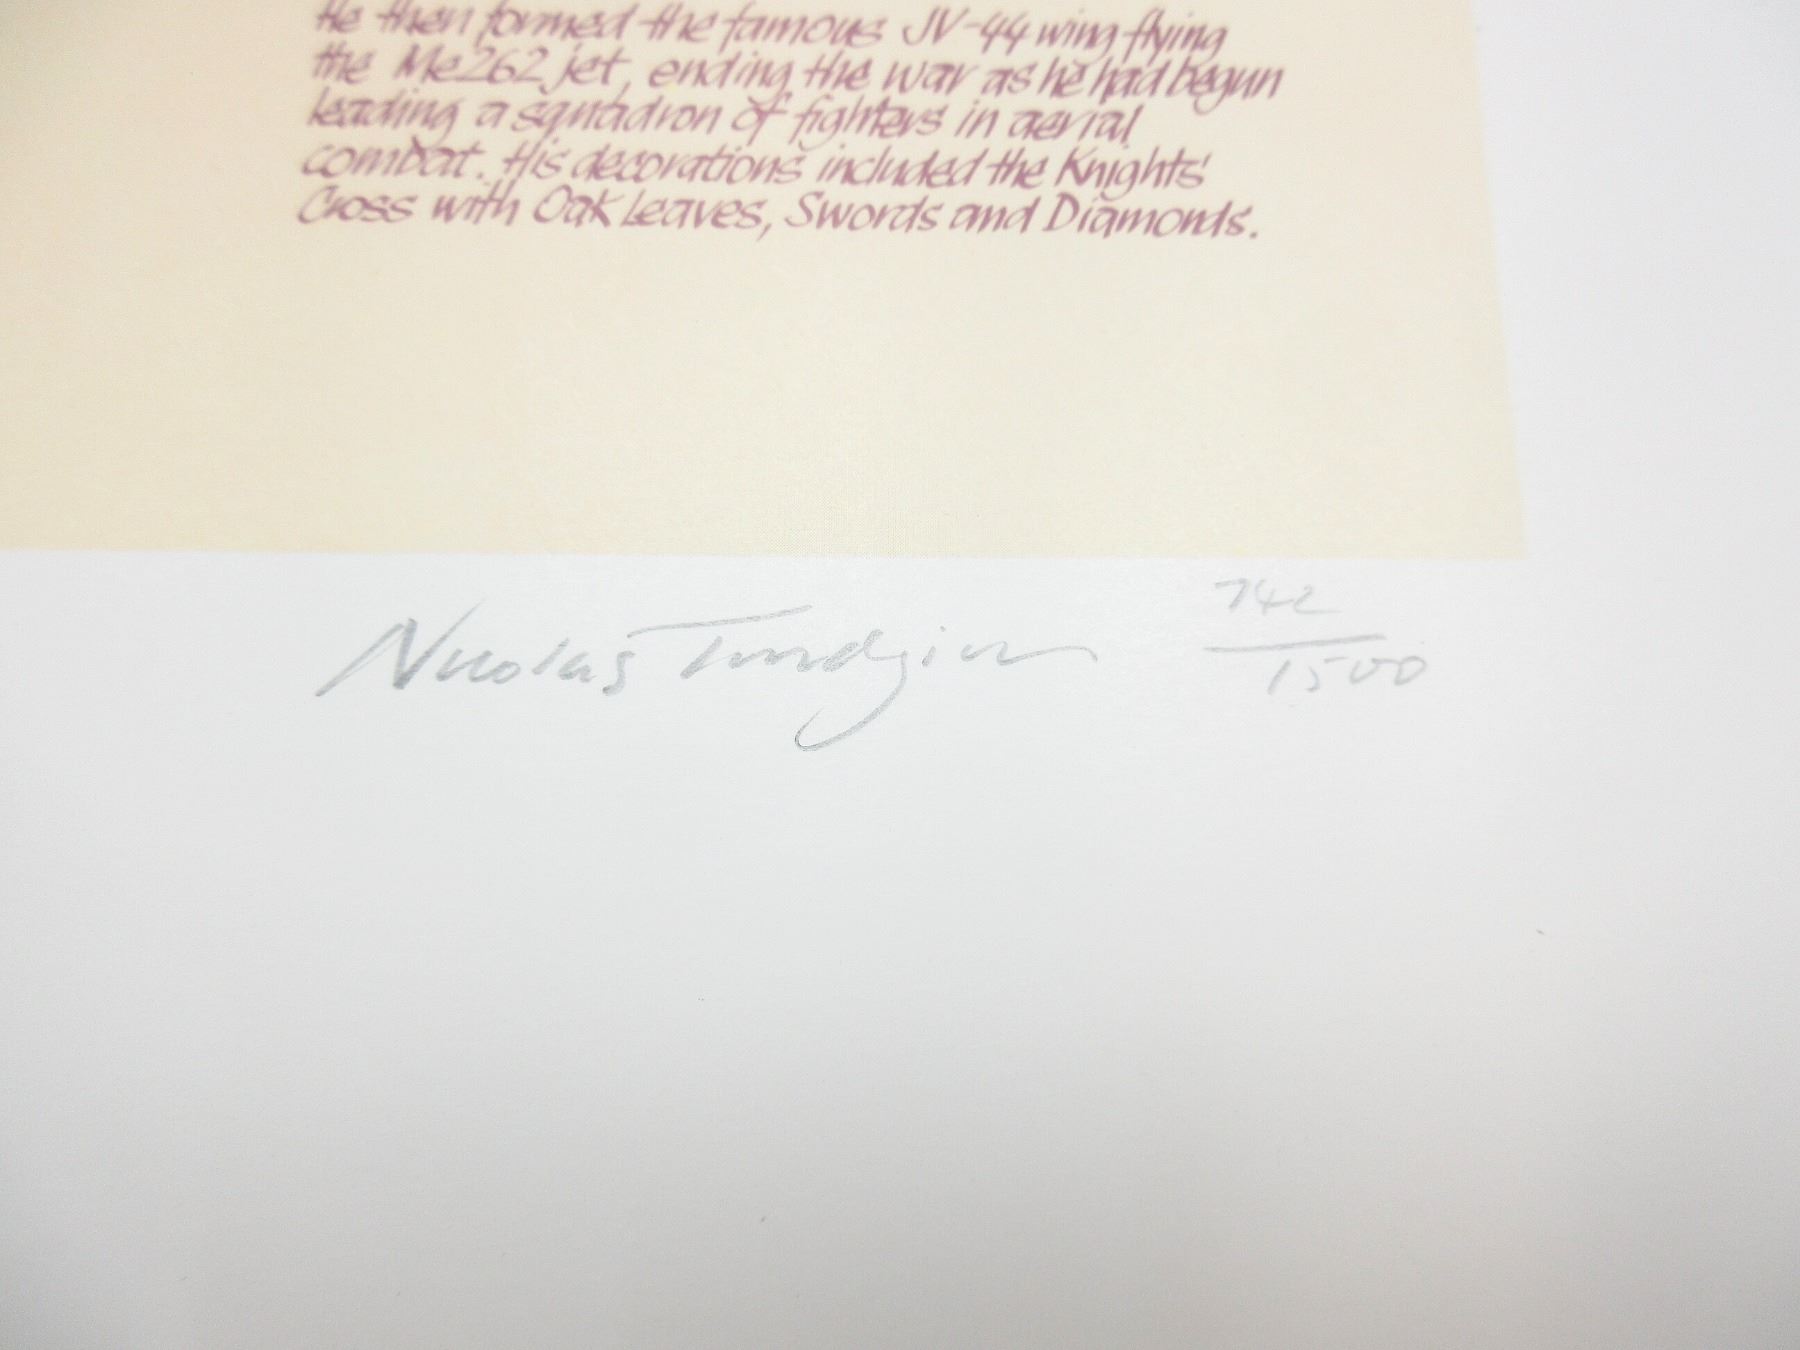 He then formed the famous JV-44 wing flying
the Me262 jet, ending the war as he had begun
leading a squadron of fighters in aerial
combat. His decorations included the Knights'
Cross with Oak Leaves, Swords and Diamonds.
Nicolas Trudgian
742
1500